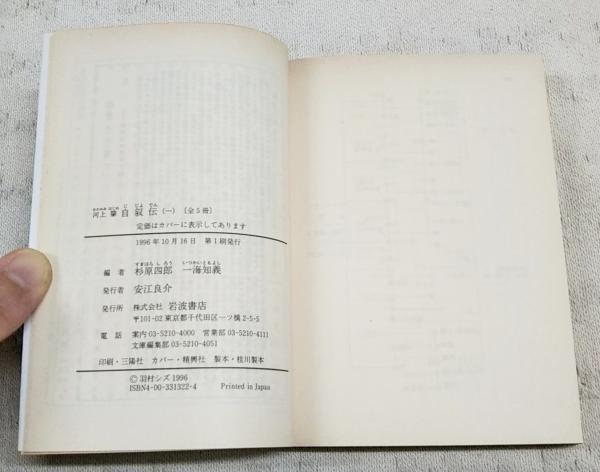 河上肇 自叙伝(一)〔全5冊〕
定価はカバーに表示してあります
1996年10月16日 第1刷発行
編者 杉原四郎 一海知義
発行者 安江良介
発行所 株式会社 岩波書店
〒101-02 東京都千代田区一ツ橋2-5-5
電話 案内03-5210-4000 営業部03-5210-4111
文庫編集部03-5210-4051
印刷・三陽社 カバー・精興社 製本・桂川製本
©羽村シズ 1996
ISBN4-00-331322-4 Printed in Japan